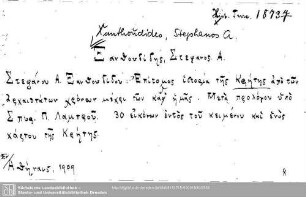 Hist. Graec. 1873 7
Xanthoudides, Stephanos A
Ξανθουδίδης, Στέφανος Α.
Στεφάνου Α. Ξανθουδίδου: Ἐπίτομος ἱστορία τῆς Κρήτης ἀπὸ τῶν
ἀρχαιοτάτων χρόνων μέχρι τῶν καθ' ἡμᾶς. Μετὰ προλόγου ὑπὸ
Σπυρ. Π. Λάμπρου. 30 εἰκόνων ἐντὸς τοῦ κειμένου καὶ ἑνὸς
χάρτου τῆς Κρήτης.
Ἐν
Ἀθήναις, 1909
8